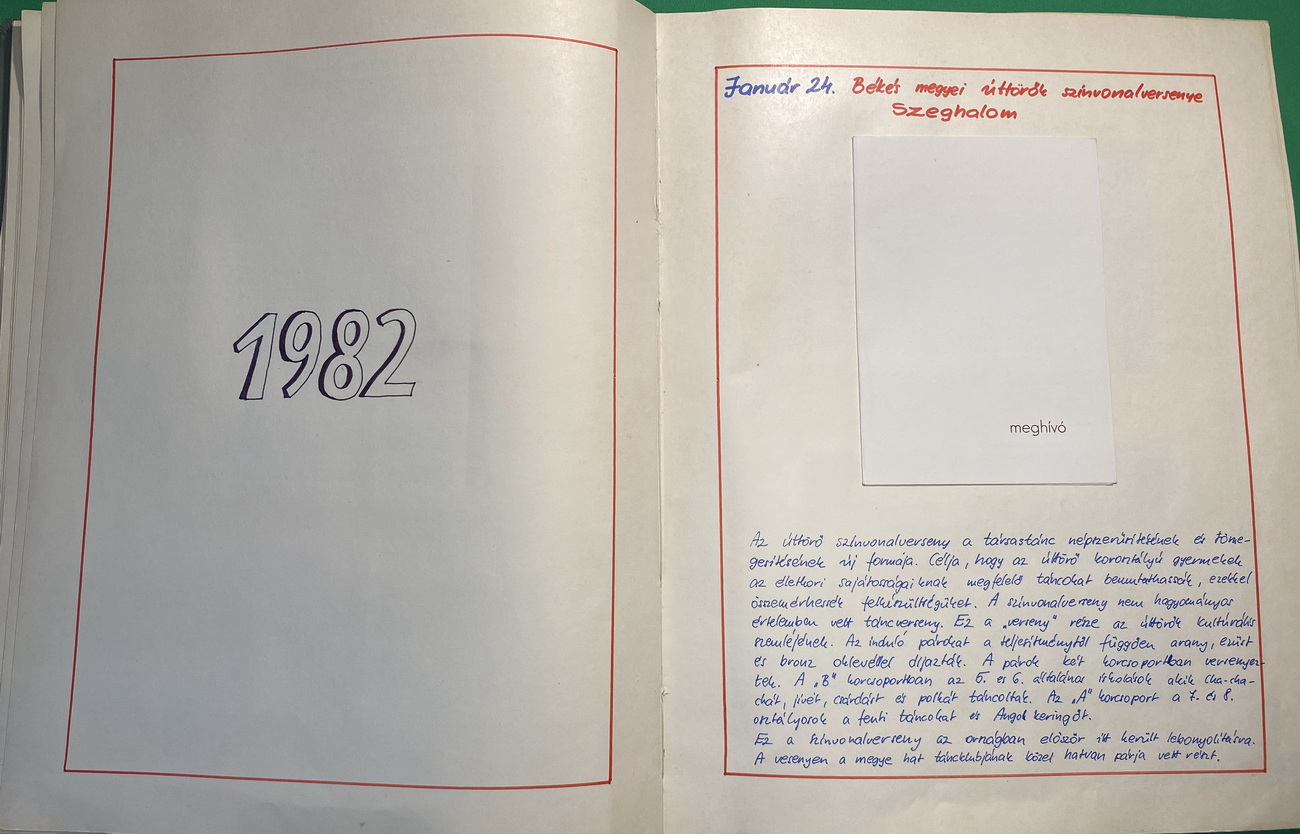 1982
Január 24. Békés megyei úttörők szinvonalversenye
Szeghalom
meghívó
Az úttörő szinvonalverseny a társastánc népszerűsítésének és töme-
gesítésének új formája. Célja, hogy az úttörő korosztályú gyermekek
az életkori sajátosságaiknak megfelelő táncokat bemutathassák, ezekkel
összemérhessék felkészültségüket. A szinvonalverseny nem hagyományos
értelemben vett táncverseny. Ez a „verseny" része az úttörők kultúrális
szemléjének. Az induló párokat a teljesítménytől függően arany, ezüst
és bronz oklevéllel díjazták. A párok két korcsoportban versenyez-
tek. A „B" korcsoportban az 5. és 6. általános iskolások akik cha-cha-
chát, jivét, csárdást és polkát táncoltak. Az „A" korcsoport a 7. és 8.
osztályosok a fenti táncokat és Angol keringőt.
Ez a szinvonalverseny az országban először itt került lebonyolitásra.
A vesenyen a megye hat táncklubjának közel hatvan párja vett részt.